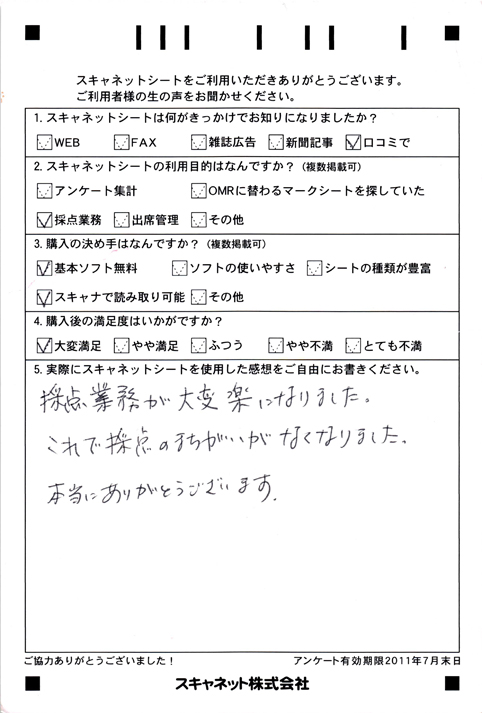 スキャネットシートをご利用いただきありがとうございます。
ご利用者様の生の声をお聞かせください。
1. スキャネットシートは何がきっかけでお知りになりましたか？
WEB FAX 雑誌広告 新聞記事 口コミで
2. スキャネットシートの利用目的はなんですか？（複数掲載可）
アンケート集計 OMRに替わるマークシートを探していた
採点業務 出席管理 その他
3. 購入の決め手はなんですか？（複数掲載可）
基本ソフト無料 ソフトの使いやすさ シートの種類が豊富
スキャナで読み取り可能 その他
4. 購入後の満足度はいかがですか？
大変満足 やや満足 ふつう やや不満 とても不満
5. 実際にスキャネットシートを使用した感想をご自由にお書きください。
採点業務が大変楽になりました。
これで採点のまちがいがなくなりました。
本当にありがとうございます。
ご協力ありがとうございました！ アンケート有効期限2011年7月末日
スキャネット株式会社